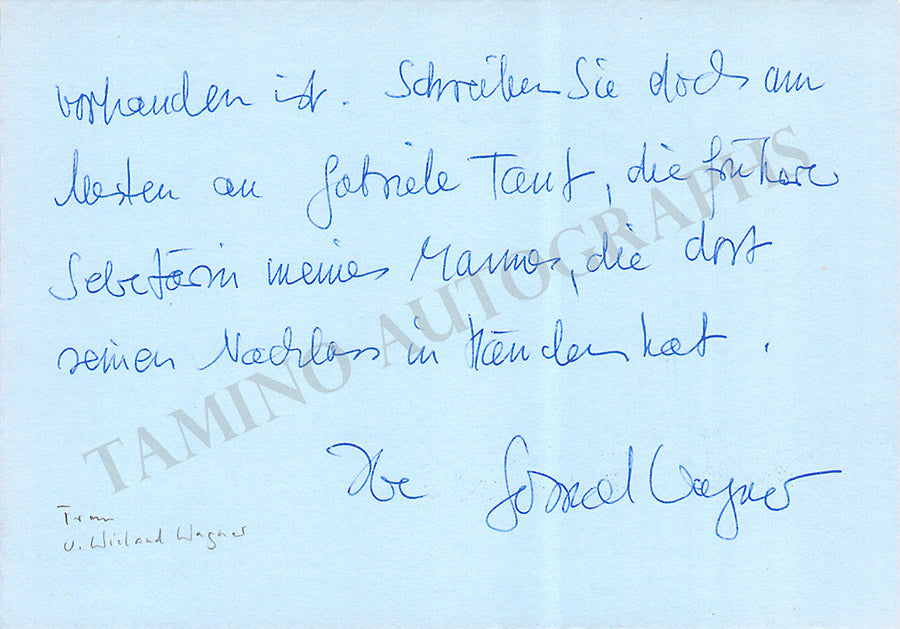 vorhanden ist. Schreiben Sie doch am
besten an Gabriele Taut, die frühere
Sekretärin meines Mannes, die dort
seinen Nachlass in Händen hat.
Ihre Gertrud Wagner
v. Wieland Wagner
TAMINO AUTOGRAPHS